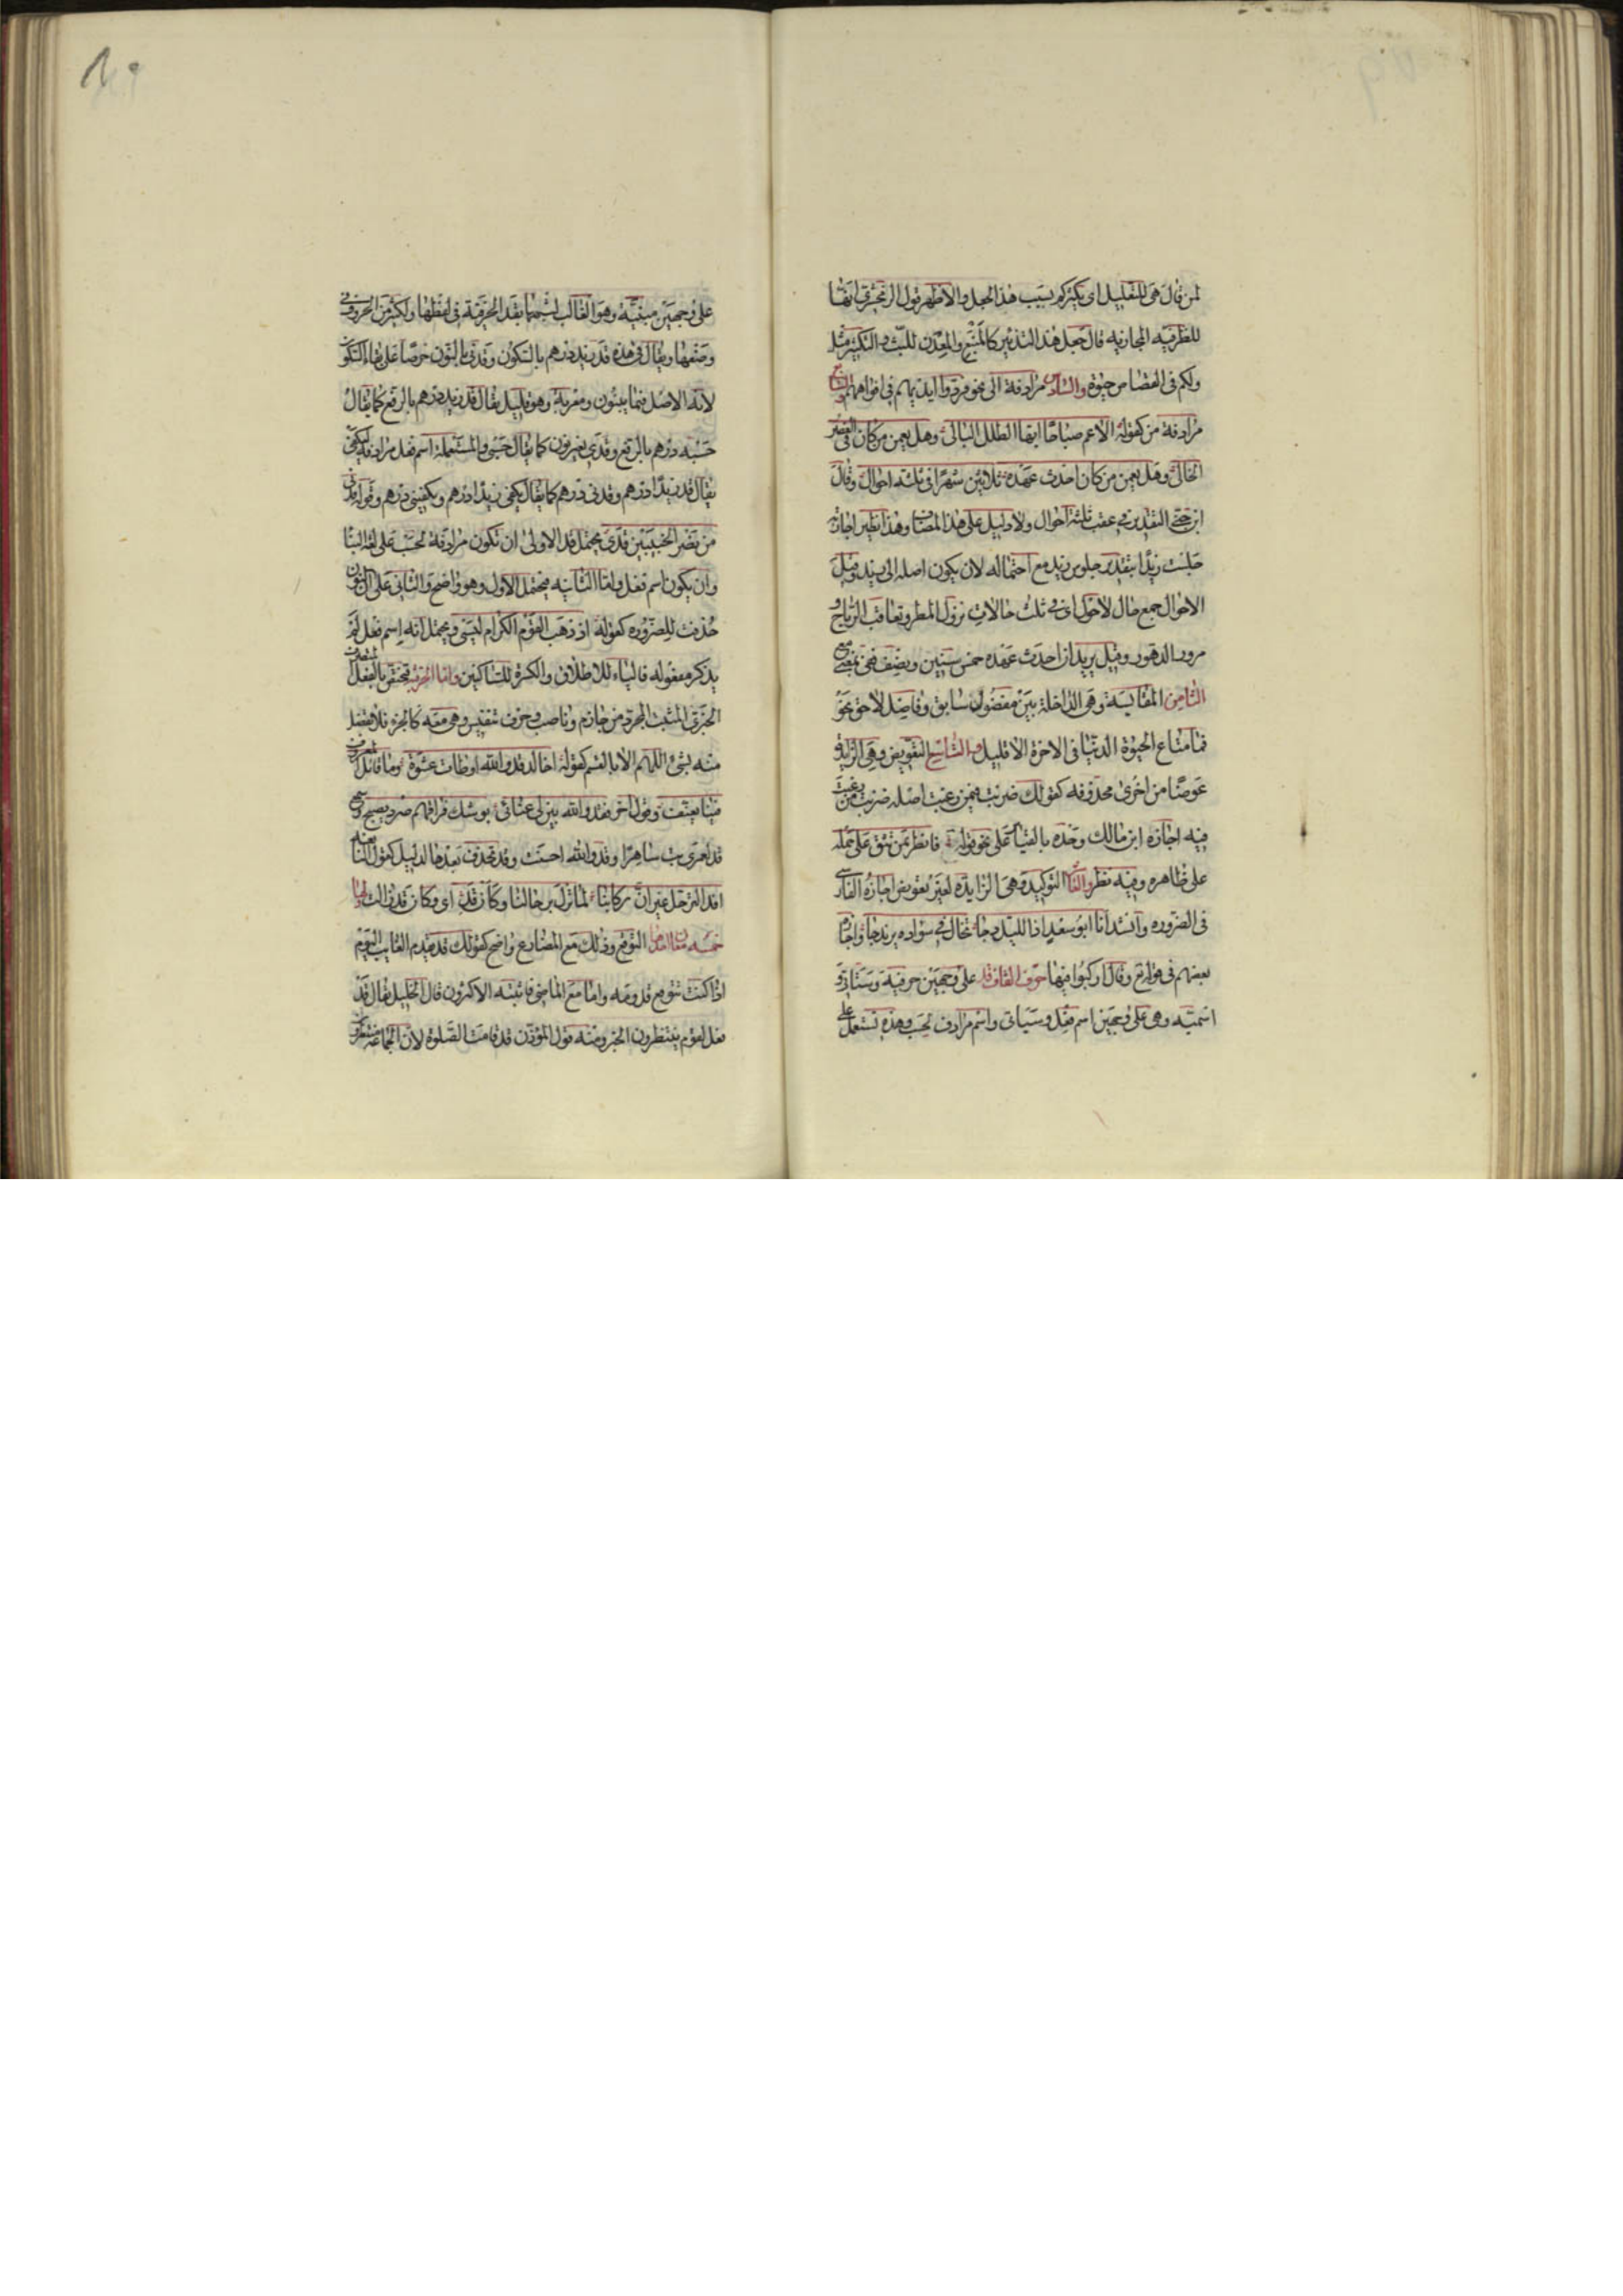 لمن قال هى للتعليل اى يكثركم بسبب هذا الجعل والاظهر قول الزمخشرى انها
للظرفيه المجازيه قال جعل هذا التدبير كالمنبع والمعدن للبث والتكثير مثل
ولكم فى القصاص حيوة والسادس مرادفة الى نحو فردوا ايديهم فى افواههم والسابع
مرادفة من كقوله الاعم صباحا ايها الطلل البالى وهل يعمن من كان فى العصر
الخالى وهل يعمن من كان احدث عهده ثلاثين شهرا فى ثلثه احوال وقال
ابن جنى التقدير فى عقب ثلثة احوال ولا دليل على هذا المضاف وهذا نظير اجازته
جلست زيدا بتقدير جلوس زيد مع احتماله لان يكون اصله الى زيد وقيل
الاحوال جمع حال لاحول اى فى ثلث حالات نزول المطر وتعاقب الرياح و
مرور الدهور وقيل يريد ان احدث عهده خمس سنين ونصف ففى بمعنى مع
الثامن المقايسة وهى الداخلة بين مفضول سابق وفاضل لاحق نحو
فما متاع الحيوة الدنيا فى الاخرة الا قليل والتاسع التعويض وهى الزايدة
عوضا من اخرى محذوفه كقولك ضربت فيمن رغبت اصله ضربت من رغبت
فيه اجازه ابن مالك وحده بالقياس على نحو قوله فانظر بمن تثق على حمله
على ظاهره وفيه نظر والعاشر التوكيد وهى الزايده لغير تعويض اجازه الفارسى
فى الضروره وانشد انا ابو سعد اذا الليل دجا يخال فى سواده يرندجا واجازه
بعضهم فى قوله تع وقال اركبوا فيها حرف القاف قد على وجهين حرفية وستاتى و
اسمية وهى على وجهين اسم فعل وسياتى واسم مرادف لحسب وهذه تستعمل على
على وجهين مبنية وهو الغالب لشبهها بقد الحرفية فى لفظها ولكثير من الحروف فى
وضعها ويقال فى هذه قد زيد درهم بالسكون وقدنى بالنون حرصا على بقاء السكون
لانه الاصل فيما يبنون ومعربة وهو قليل يقال قد زيد درهم بالرفع كما يقال
حسبه درهم بالرفع وقدى بغير نون كما يقال حسبى والمستعملة اسم فعل مرادفه ليكفى
يقال قد زيدا درهم وقدنى درهم كما يقال يكفى زيدا درهم ويكفينى درهم وقوله قدنى
من نصر الخبيبين قدى يحتمل قد الاولى ان تكون مرادفة لحسب على لغة البنا
وان يكون اسم فعل واما الثانيه فيحتمل الاول وهو واضح والثانى على ان النون
حذفت للضروره كقوله اذ ذهب القوم الكرام ليسى ويحتمل انه اسم فعل لم
يذكر مفعوله فالياء للاطلاق والكسرة للساكنين واما الحرفية فمختصة بالفعل المتصرف
الخبرى المثبت المجرد من جازم وناصب وحرف تنفيس وهى معه كالجزء فلا تفصل
منه بشئ اللهم الا بالقسم كقوله اخالد قد والله اوطات عشوة وما قائل المعروف
فينا يعنف وقول اخر فقد والله بين لى عنائى بوشك فراقهم صرد يصيح وسمع
قد لعمرى بت ساهرا وقد والله احسنت وقد تحذف بعدها لدليل كقول النابغه
افد الترحل غير ان ركابنا لما تزل برحالنا وكان قد اى وكان قد زالت ولها
خمسه معان احدها التوقع وذلك مع المضارع واضح كقولك قد يقدم الغايب اليوم
اذا كنت تتوقع قدومه واما مع الماضى فاثبته الاكثرون قال الخليل يقال قد
فعل لقوم ينتظرون الخبر ومنه قول المؤذن قد قامت الصلوة لان الجماعة منتظرون